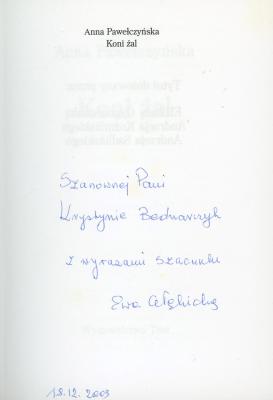 Anna Pawełczyńska
Koni żal
Szanownej Pani
Krystynie Bednarczyk
z wyrazami szacunku
Ewa
18.12.2003